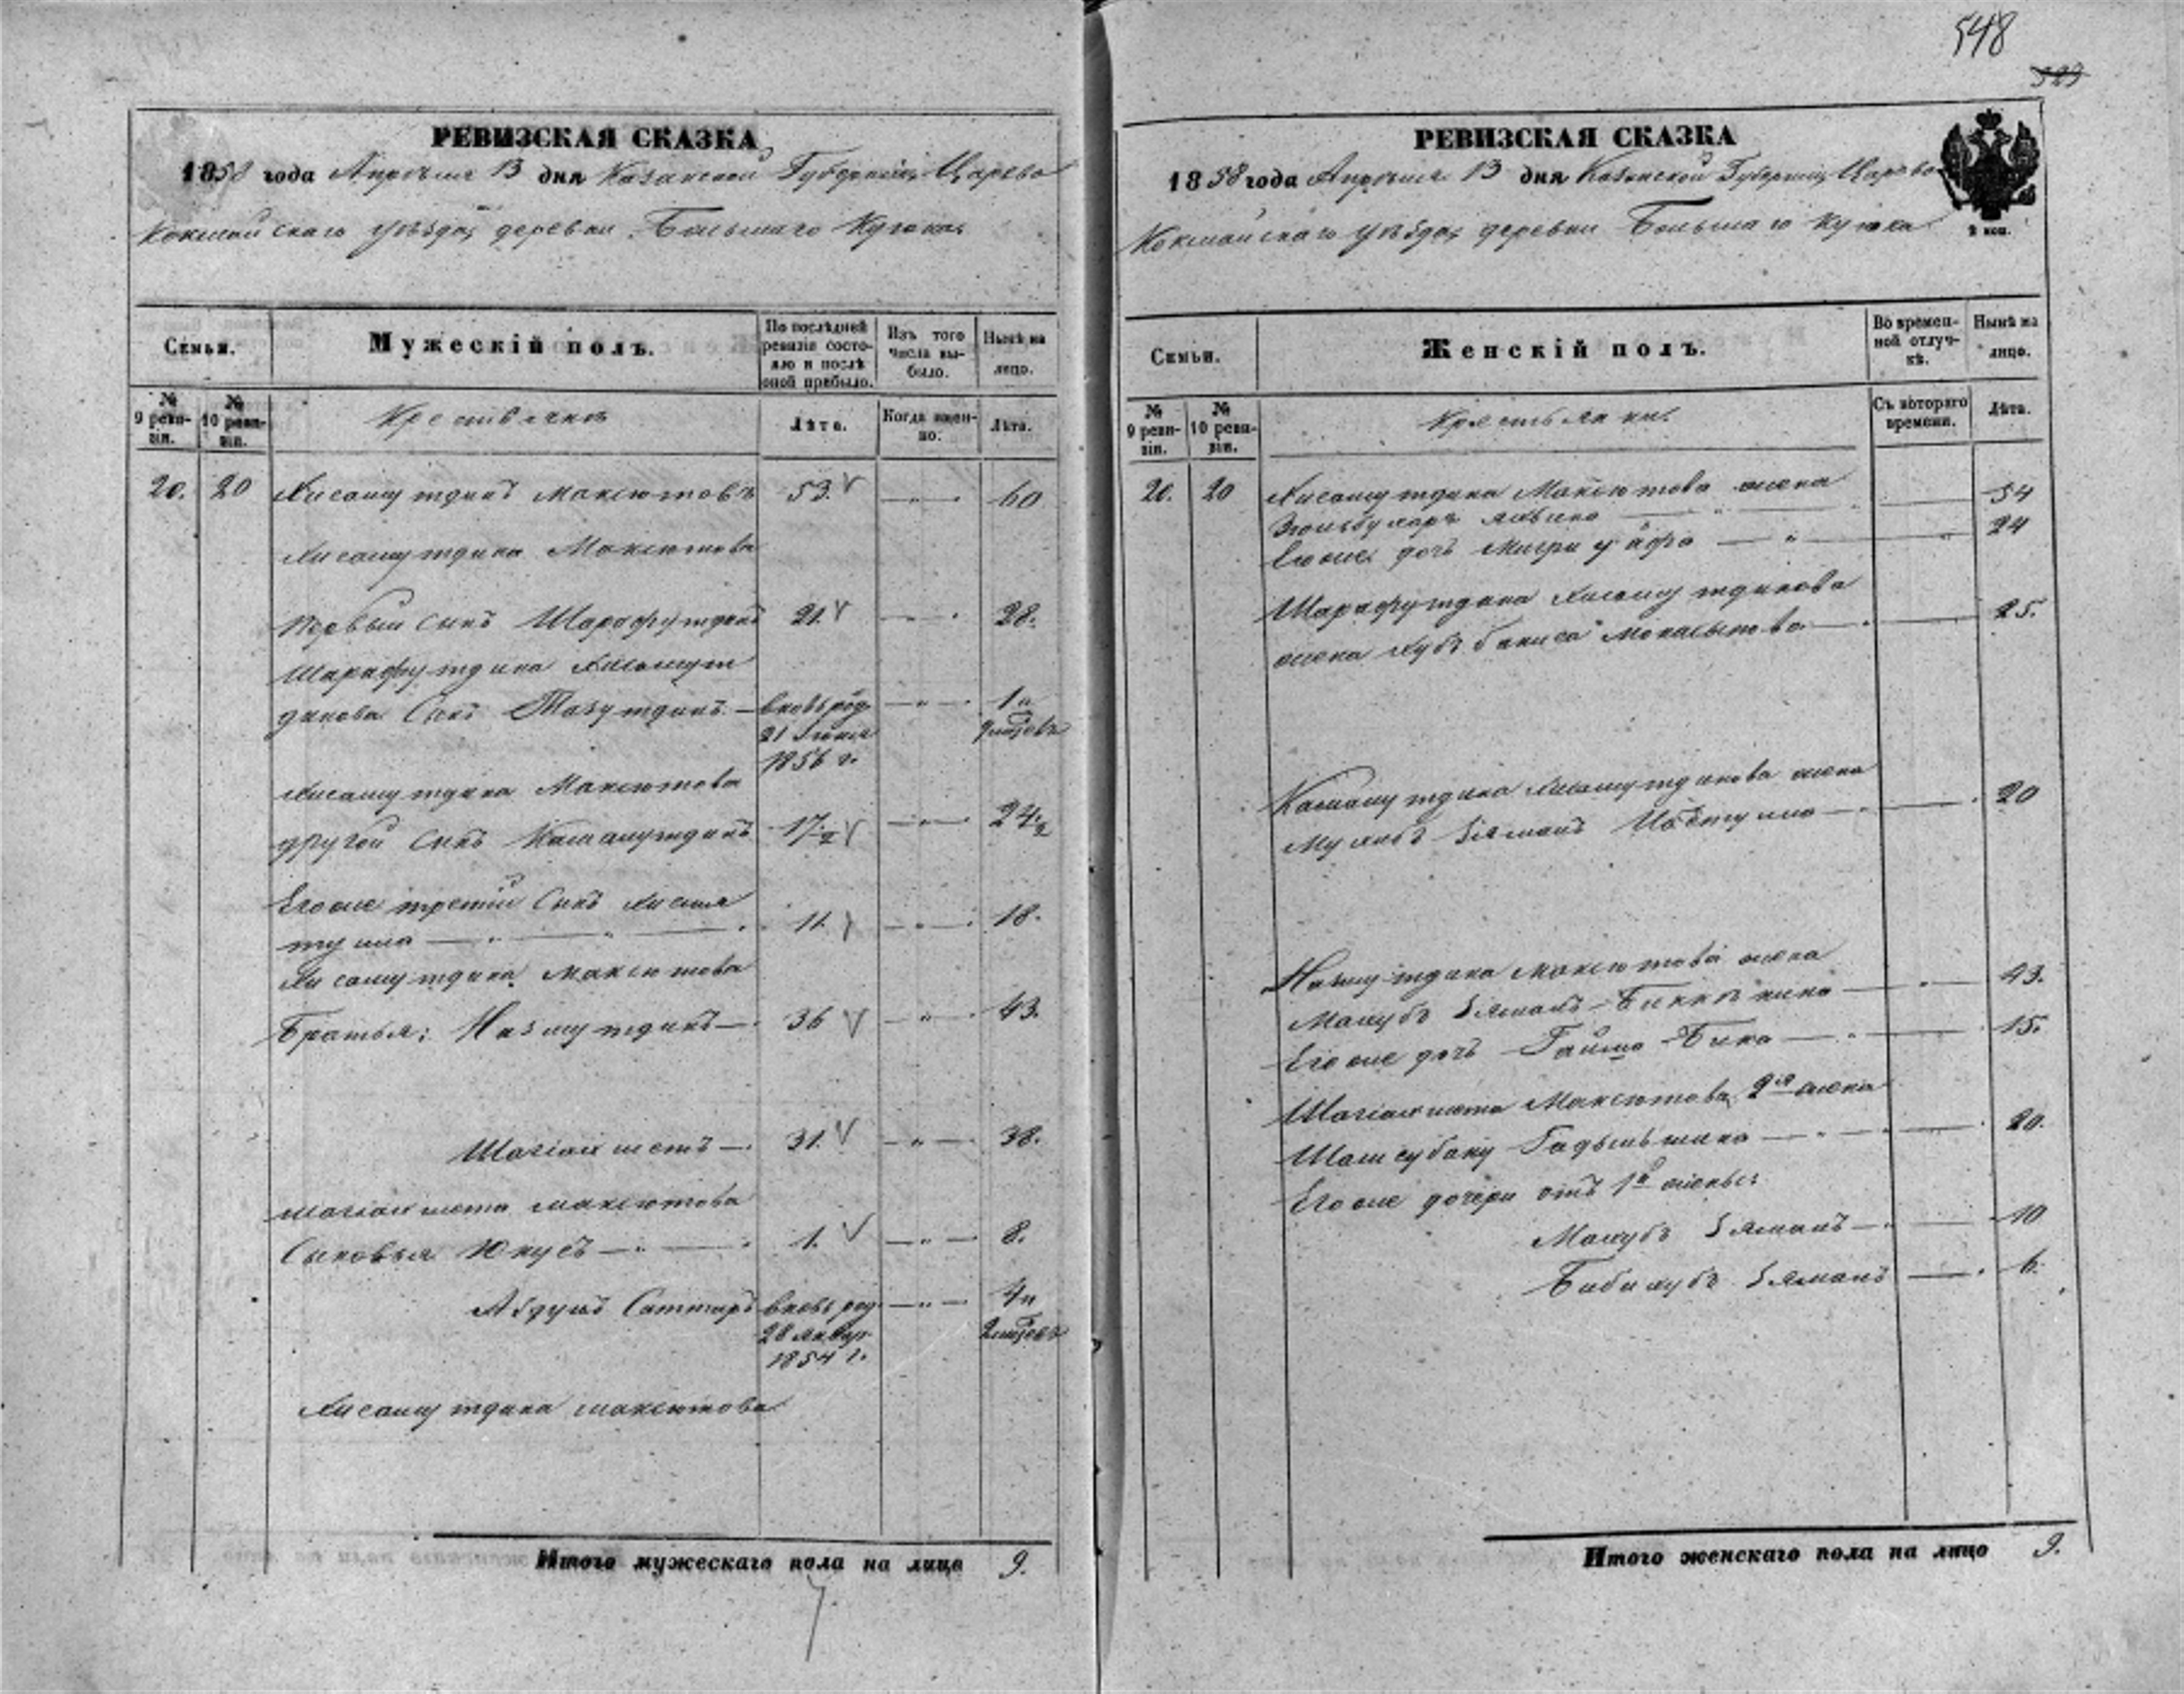 548
529
РЕВИЗСКАЯ СКАЗКА
1858 года Апреля 13 дня Казанской Губерніи, Царево
Кокшайскаго уѣзда, деревни Большаго Кугюка
Семьи.
Мужескій полъ.
По послѣдней ревизіи состояло и послѣ оной прибыло.
Изъ того числа выбыло.
Нынѣ на лицо.
№ 9 ревизіи.
№ 10 ревизіи.
Крестьяне
Лѣта.
Когда именно.
Лѣта.
20. 20 Хисамутдинъ Максютовъ 53. 60
Хисамутдина Максютова
Первый сынъ Шарафутдинъ 21. 28.
Шарафутдина Хисамут
динова Сынъ вновь род 1 и
21 Іюня 9 мѣсев
1856 г.
Хисамутдина Максютова
другой сынъ Камалутдинъ 17 1/2 24 1/2
Егоже третій Сынъ 11. 18.
Хисамутдина Максютова
Братья: Назмутдинъ 36 43.
Шагіахметъ 31. 38.
Шагіахмета Максютова
Сыновья Юнусъ 1. 8.
Абдулъ Саттаръ вновь род 4 и
28 Январ 2 мѣсев
1854 г.
Хисамутдина Максютова
Итого мужескаго пола на лицо 9.
РЕВИЗСКАЯ СКАЗКА
1858 года Апреля 13 дня Казанской Губерніи, Царево
Кокшайскаго уѣзда, деревни Большаго Кугюка
2 коп.
Семьи.
Женскій полъ.
Во временной отлучкѣ.
Нынѣ на лицо.
№ 9 ревизіи.
№ 10 ревизіи.
Крестьянки.
Съ котораго времени.
Лѣта.
20. 20 Хисамутдина Максютова жена
54
Егоже дочь 24
Шарафутдина Хисамутдинова
жена 25.
Камалутдина Хисамутдинова жена
20
Назмутдина Максютова жена
43.
Егоже дочь Гайша Бика 15.
Шагіахмета Максютова 2я жена
20.
Егоже дочери отъ 1й жены:
Махубъ Зяманъ 10
Бибихубъ Зяманъ 6.
Итого женскаго пола на лицо 9.